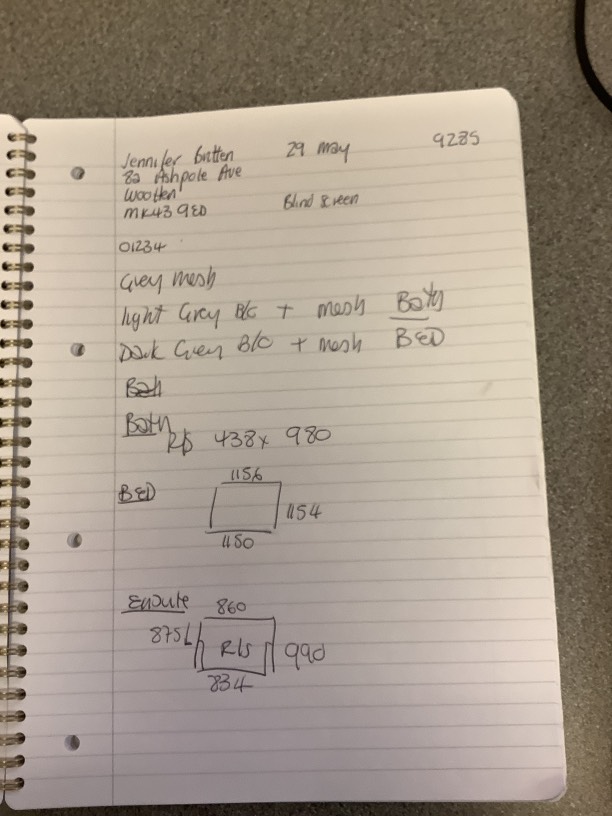 Jennifer Britten 29 May 9285
82 Ashpole Ave
Wooten
MK43 9ED Blind Screen
01234
Grey mesh
light Grey B/c + mesh Bath
Dark Grey B/c + mesh BED
Bath
R/s 438 x 980
BED 1156
1154
1150
Ensuite 860
875 L R/s 990
834